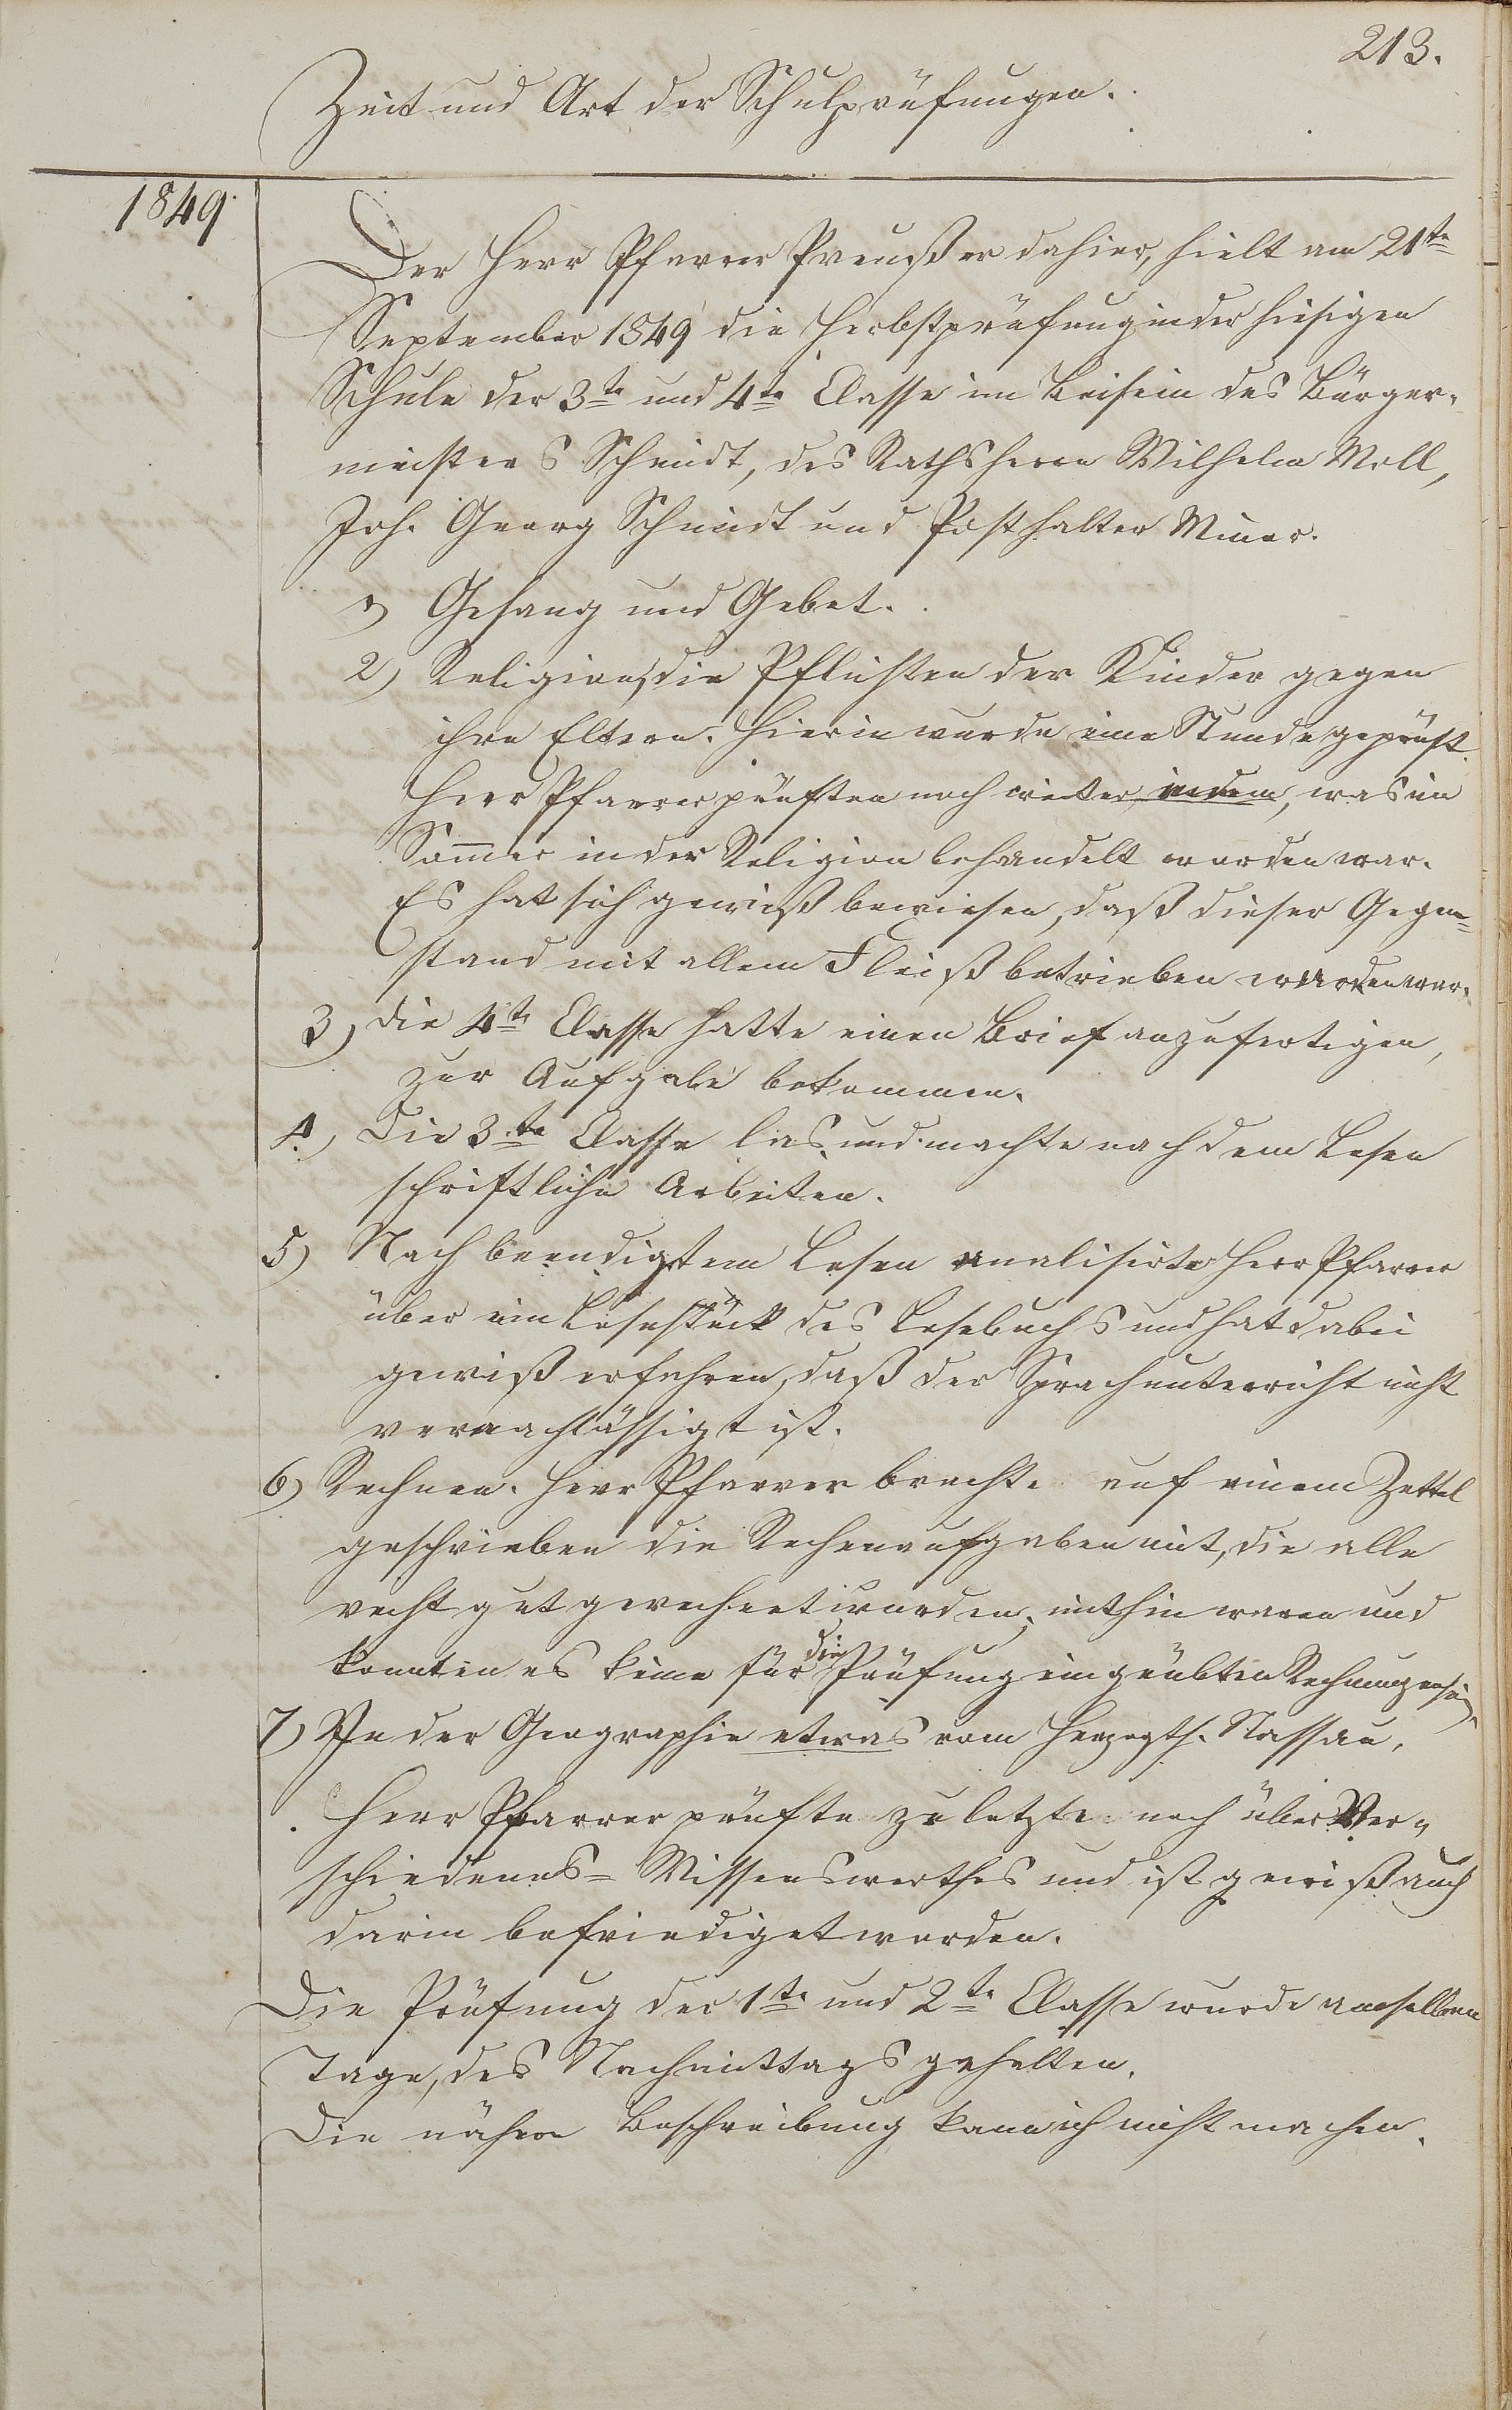 213.
Zeit und Art der Schulprüfungen.
1849.
Der Herr Pfarrer Preußer dahier, hielt am 21te
September 1849 die Herbstprüfung in der hiesigen
Schule der 3te und 4te Classe im Beisein des Bürger-
meisters Schmidt, des Rathsherrn Wilhelm Moll,
Joh. Georg Schmidt und Posthalter Minor.
1) Gesang und Gebet.
2) Religion, die Pflichten der Kinder gegen
ihre Eltern. Hierin wurde eine Stunde geprüft.
Herr Pfarrer prüften noch weiter in dem, was im
Sommer in der Religion behandelt worden war.
Es hat sich gewiß bewiesen, daß dieser Gegen-
stand mit allem Fleiß betrieben worden war.
3) die 4te Classe hatte einen Brief anzufertigen,
zur Aufgabe bekommen.
4.) Die 3te Classe las und machte nach dem Lesen
schriftliche Arbeiten.
5) Nach beendigtem Lesen analisirte Herr Pfarrer
über ein Lesestück des Lesebuchs und hat dabei
gewiß erfahren, daß der Sprachunterricht nicht
vernachlässigt ist.
6) Rechnen. Herr Pfarrer brachte auf einem Zettel
geschrieben die Rechenaufgaben mit, die alle
recht gut gerechnet wurden; mithin waren und
konnten es keine für die Prüfung eingeübten Rechnungen sein.
7) In der Geographie etwas vom Herzogth. Nassau.
Herr Pfarrer prüfte zuletzte noch über Ver-
schiedenes-Wissenswerthes und ist gewiß auch
darin befriediget worden.
Die Prüfung der 1te und 2te Classe wurde am selben
Tage, des Nachmittags gehalten.
Die nähere Beschreibung kann ich nicht machen.